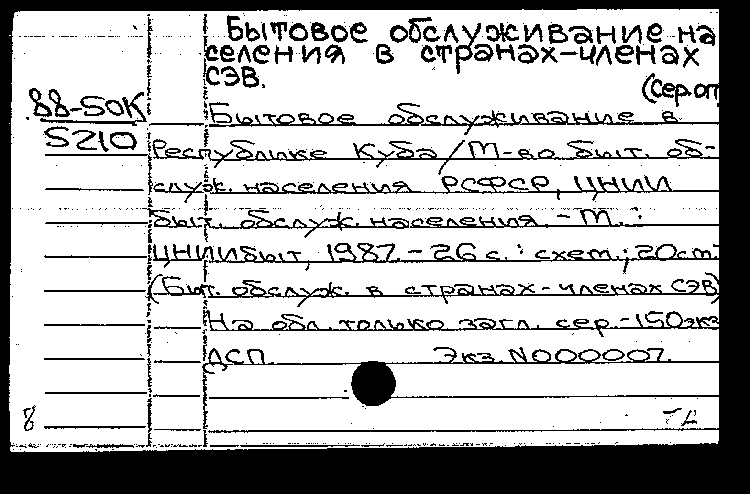 Бытовое обслуживание на
селения в странах-членах
СЭВ.
(Сер.оп
88-50К
5210
Бытовое обслуживание в
Республике Куба/М-во быт. об-
служ. населения РСФСР, ЦНИИ
быт. обслуж. населения. - М. :
ЦНИИбыт, 1987. - 26 с. : схем.; 20см.
(Быт. обслуж. в странах-членах СЭВ)
На обл. только загл. сер. - 150экз
ДСП. Экз. N000007.
8